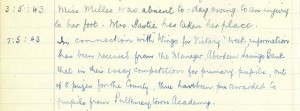 3:5:43 Miss Miller was absent to-day owing to an injury
to her foot. Mrs. Nastie has taken her place.
7:5:43 In connection with Wings for Victory Week, information
has been received from the Manager Aberdeen Savings Bank
that in their essay competition for primary pupils, out
of 8 prizes for the County, three have been awarded to
pupils from Pulteneytown Academy.